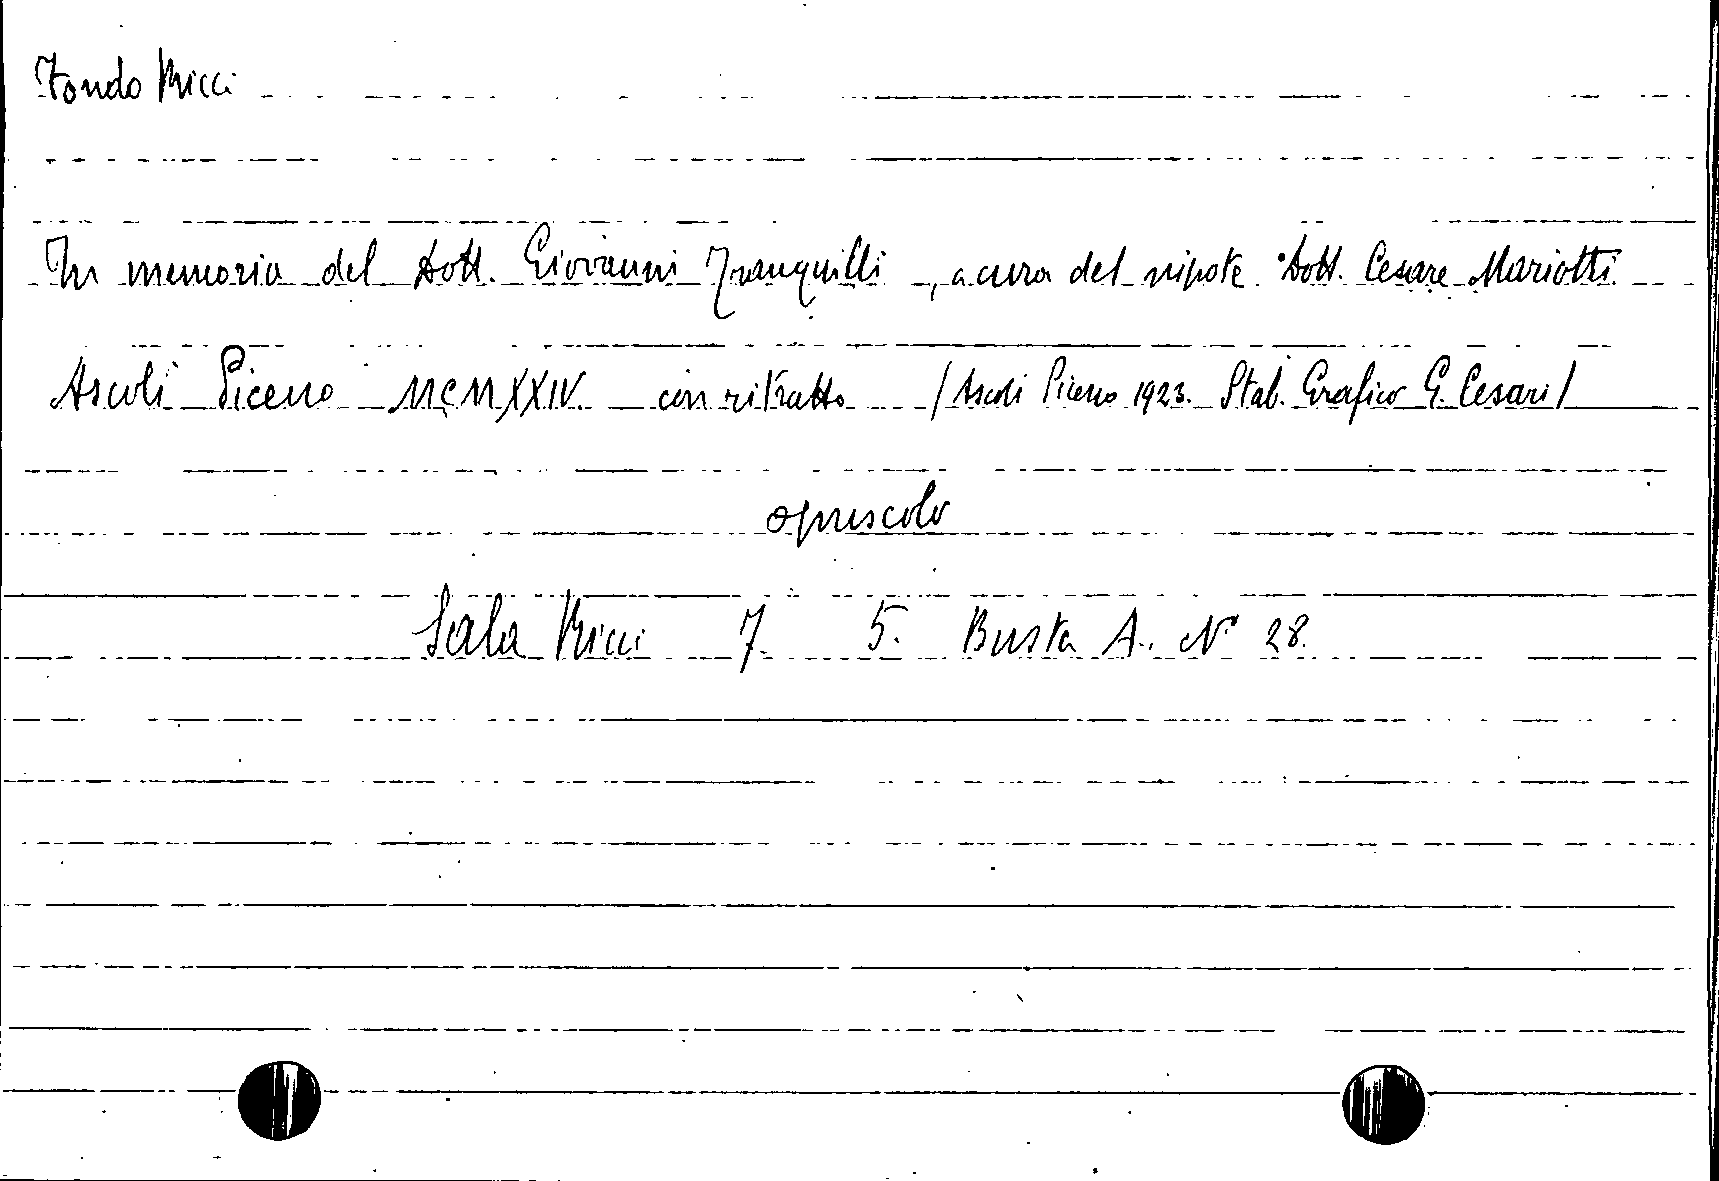 Fondo Ricci
In memoria del Dott. Giovanni Tranquilli, a cura del nipote Dott. Cesare Mariotti
Ascoli Piceno MCMXXIV con ritratto (Ascoli Piceno 1923. Stab. Grafico G. Cesari)
opuscolo
Sala Ricci 7. 5. Busta A. N° 28.